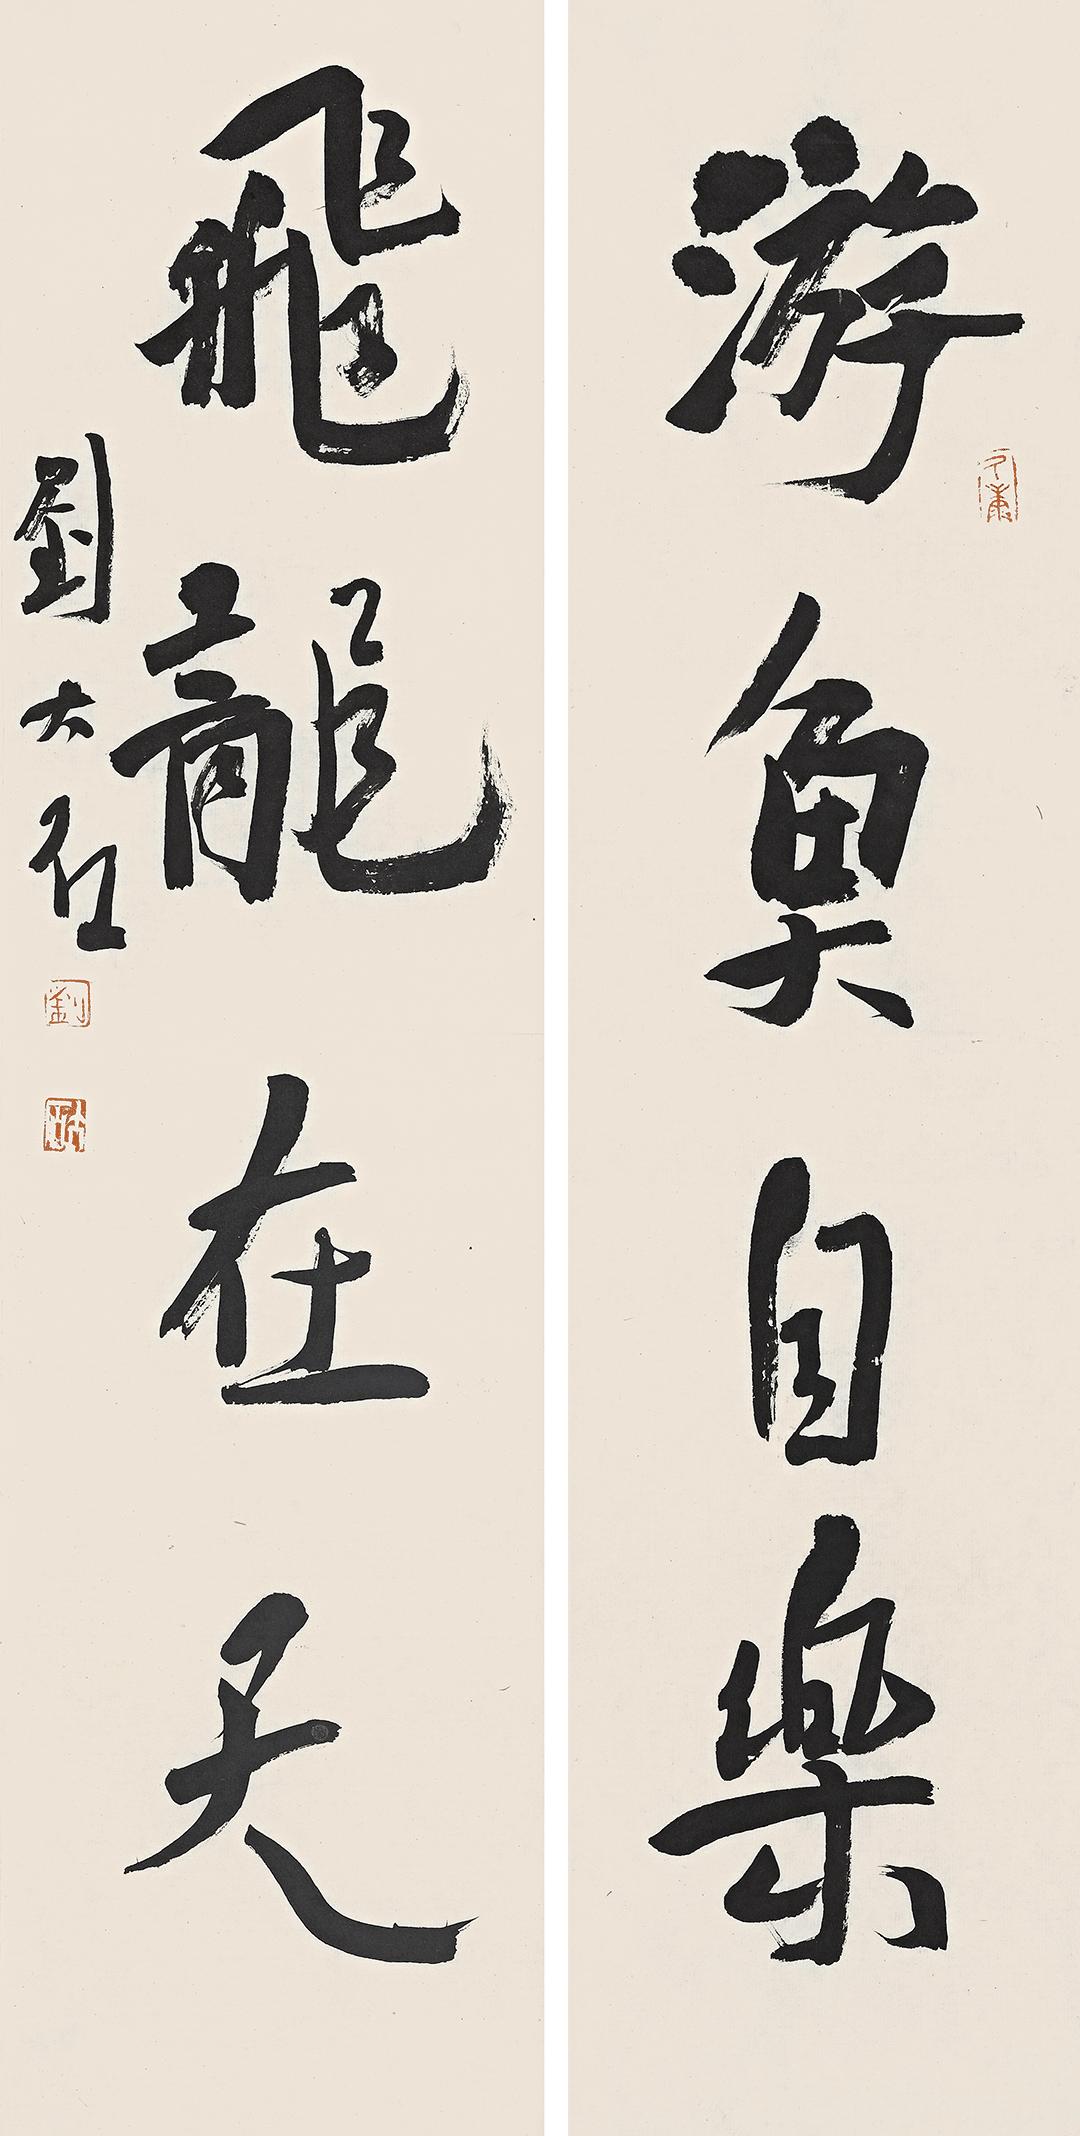 游魚自樂
飛龍在天
劉大任
劉